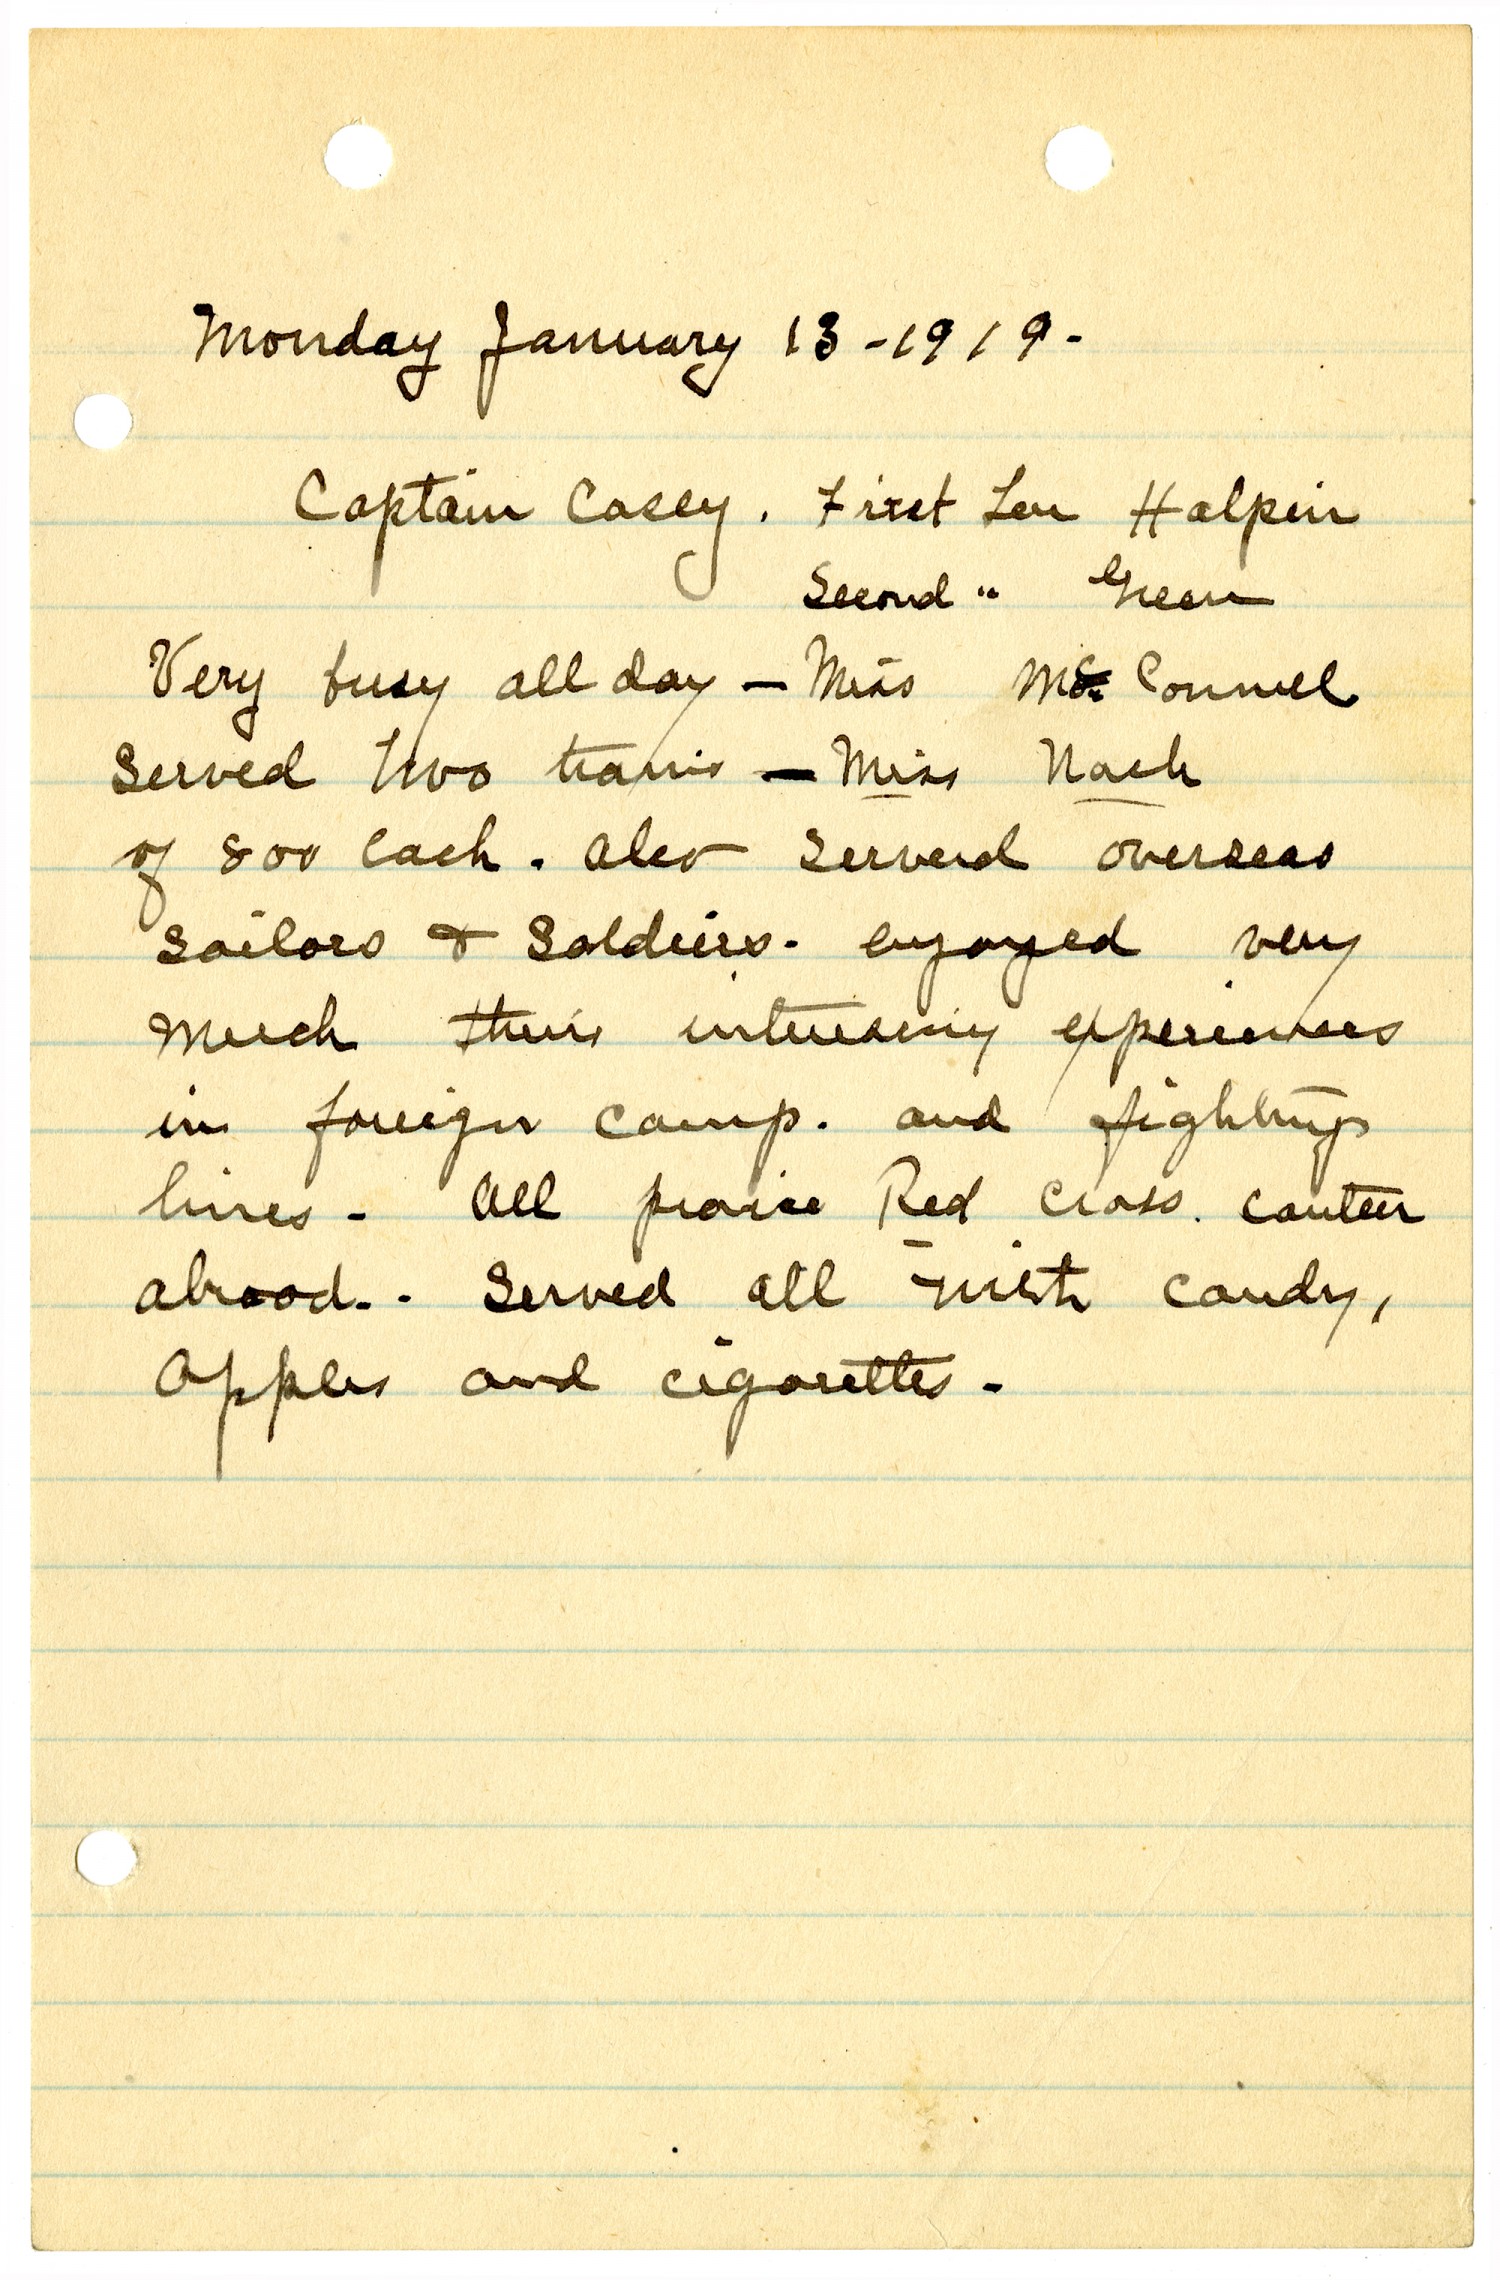 Monday January 13 - 1919 -
Captain Casey. First Leu Halpin
Second " Green
Very busy all day — Miss McConnell
Served two trains — Miss Nash
of 800 each. Also served overseas
Sailors & Soldiers. enjoyed very
much their interesing experiences
in foreign camp. and fighting
lines - All praise Red Cross. canteen
abrood. - Served all with candy,
Apples and cigarettes -